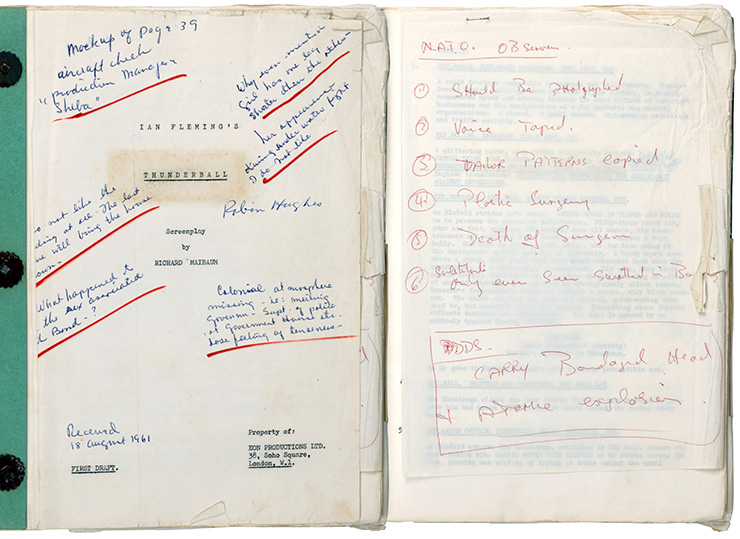 Mockup of Page 39
aircraft check
"production Manager
Sheba"
Why even mention
Girl has one leg
shorter than the other -
her appearance
during underwater fight
I do not like
IAN FLEMING'S
THUNDERBALL
not like the
ending at all - The last
will bring the house
down -
Robin Hughes
Screenplay
by
RICHARD MAIBAUN
What happened to
the sex associated
Bond - ?
Colonial atmosphere
missing - ie: meeting
Governor - Supt. of police
at Government House etc.
Lose feeling of tenseness -
Received
18 August 1961
FIRST DRAFT.
Property of:
EON PRODUCTIONS LTD.
38, Soho Square,
London, W.1.
N.A.T.O. Observer.
① Should Be Photographed
② Voice Taped.
③ TAILOR PATTERNS copied
④ Plastic Surgery
⑤ Death of Surgeon
⑥ Substitute
Only ever Seen Swathed in
ODDS -
CARRY Bandaged Head
+ Atomic explosion